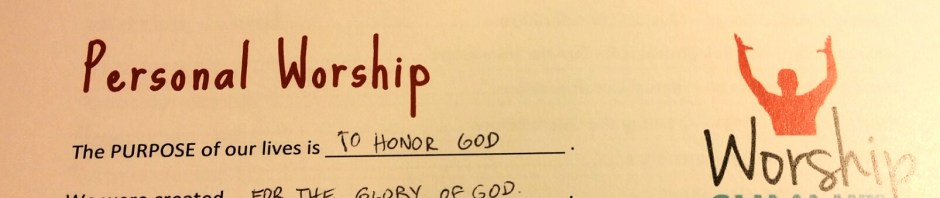 Personal Worship
The PURPOSE of our lives is TO HONOR GOD .
We were created FOR THE GLORY OF GOD.
Worship